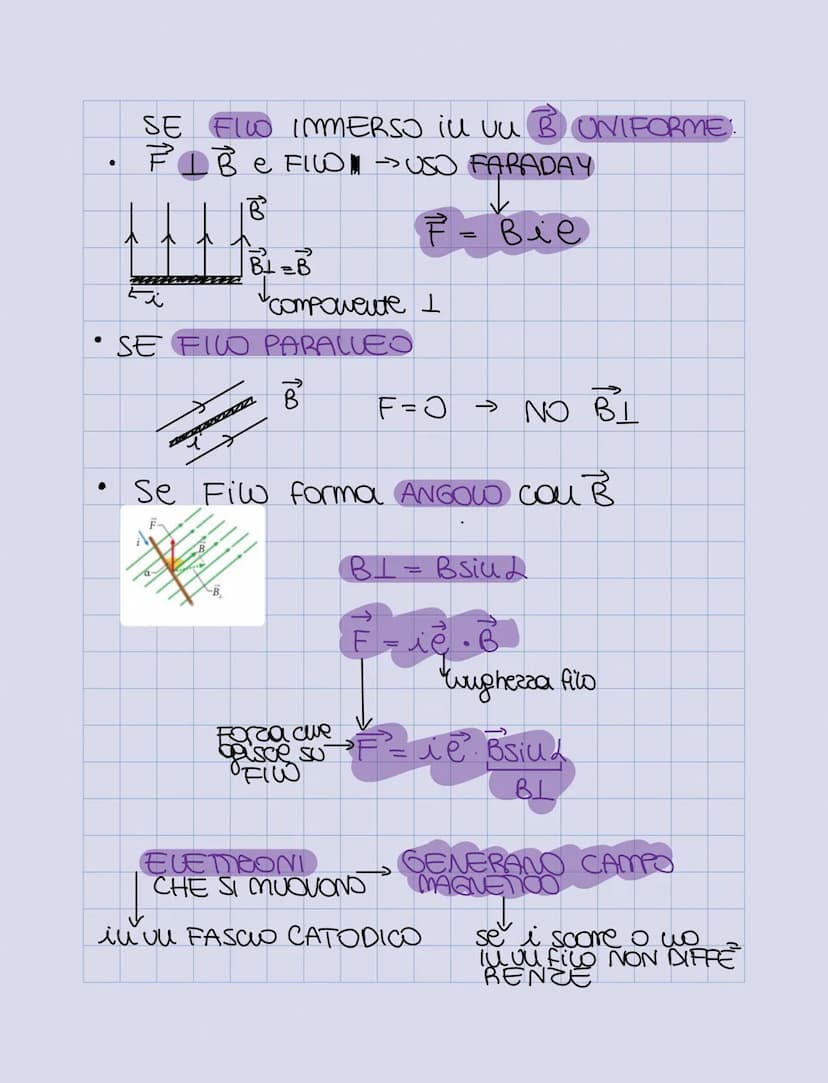 SE FILO IMMERSO in un B⃗ UNIFORME:
• F⃗ ⊥ B⃗ e FILO → USO FARADAY
B⃗
F⃗ = Bil
B⃗⊥ = B⃗
i
componente ⊥
• SE FILO PARALLELO
B⃗
F=0 → NO B⃗⊥
i
• Se FILO forma ANGOLO con B⃗
F⃗
i
B⃗
α
B⃗⊥
B⊥ = Bsinα
F⃗ = il⃗ · B⃗
lunghezza filo
Forza che
agisce su → F⃗ = il⃗ · B⃗sinα
FILO
B⊥
ELETTRONI → GENERANO CAMPO
CHE SI MUOVONO MAGNETICO
in un FASCIO CATODICO
se i scorre o no
in un filo NON DIFFE=
RENZE